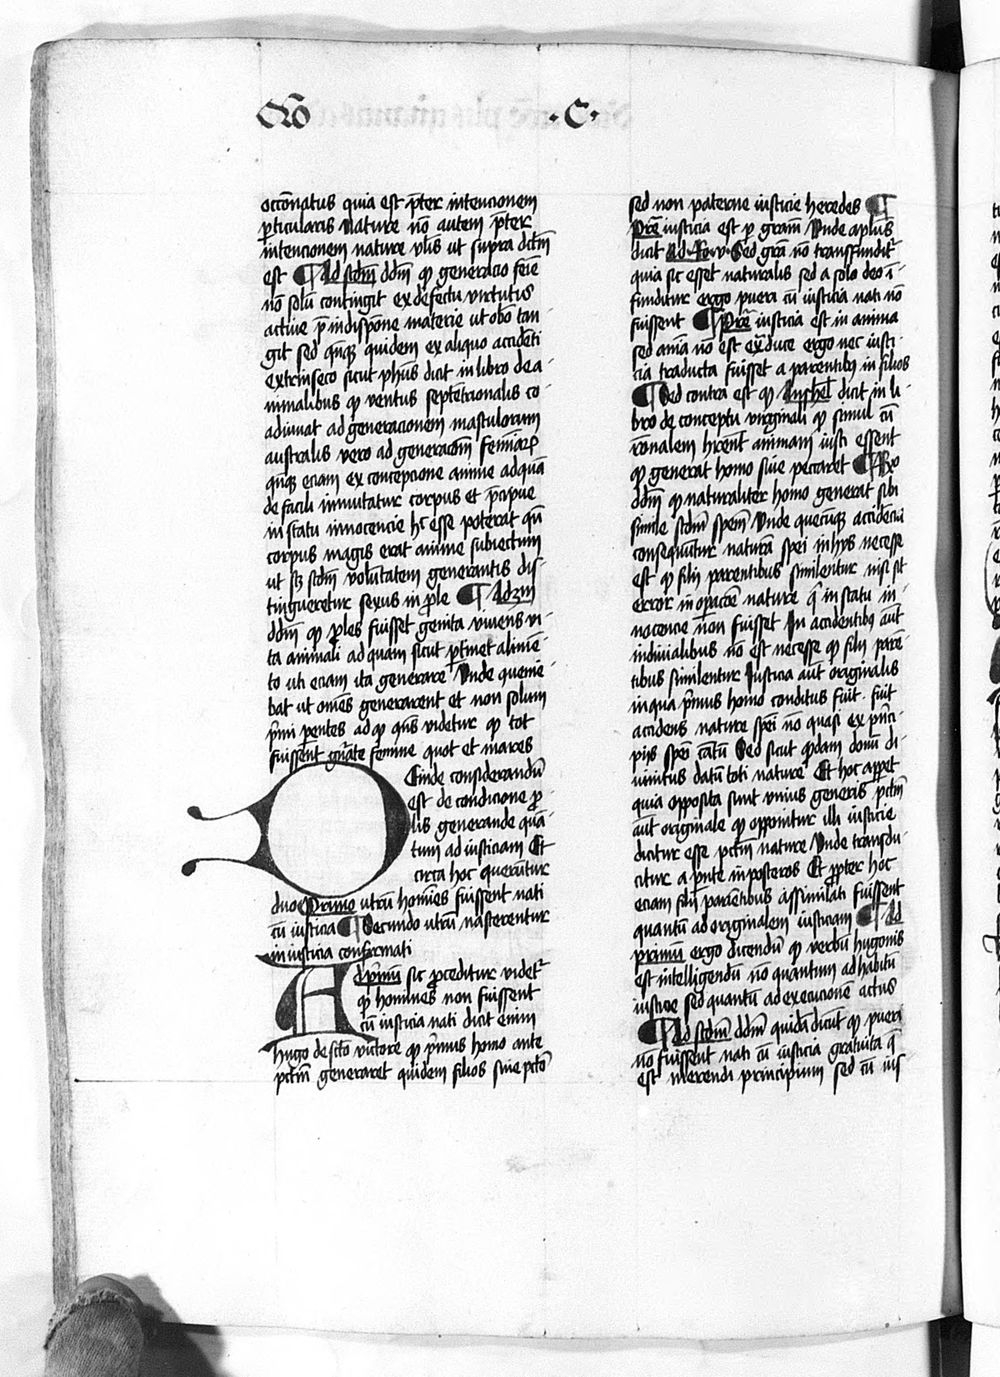 Qo .C.
occōnatus quia est p̄ter intencionem
ꝑticularis nature nō autem p̄ter
intencionem nature vl̄is ut supra dc̄m
est ¶ Ad scdm̄ ddm̄ ꝙ generacio feīe
nō solū contingit ex defectu virtutis
actiue p̄ indispōne materie ut obō tan-
git sed qn̄qꝫ quidem ex aliquo accidēti
extrinseco sicut ph̄us dicit in libro de a-
nimalibus ꝙ ventus septētrionalis co-
adiuuat ad generacionem masculorum
australis vero ad generacōm̄ femīaꝝ
qn̄qꝫ eciam ex concepcione anime ad quā
de facili inmutatur corpus et p̄cipue
in statu innocencie hͦ esse poterat qn̄
corpus magis erat anime subiectum
ut sꝫ scdm̄ volūtatem generantis dis-
tingueretur sexus in ꝓle ¶ Ad 3m
ddm̄ ꝙ ꝓles fuisset genita viuens vi-
ta animali ad quam sicut ꝑtinet alimē-
to uti eciam ita generare Vnde quenie-
bat ut om̄es generarent et non solum
p̄mi parentes ad qꝫ qn̄s videtur ꝙ tot
fuissent gn̄ate femine quot et mares
Deinde considerandū
est de condicione ꝓ-
lis generande quā-
tum ad iusticiam Et
circa hoc querūtur
duo Primo utrū homīes fuissent nati
cū iusticia ¶ Secundo utrū nascerentur
in iusticia confirmati
Ad p̄mū sic ꝓceditur videtʳ
ꝙ homines non fuissent
cū iusticia nati dicit enim
Hugo de scō victore ꝙ p̄mus homo ante
pctm̄ generaret quidem filios sine pctō
sed non paterne iusticie heredes ¶
Pre̅ iusticia est ꝑ gram̄ Vnde aplus
dicit Ad Ro v Sed gra̅ nō transfunditʳ
quia sic esset naturalis sed a solo deo ī-
funditur ergo pueri cū iusticia nati nō
fuissent ¶ Pre̅ iusticia est in anima
sed aīa nō est ex traduce ergo nec iusti-
cia traducta fuisset a parentibꝫ in filios
¶ Sed contra est ꝙ Anshel̄ dicit in li-
bro de conceptu virginali ꝙ simul cū
rōnalem hrēnt animam iusti essent
qꝫ generat homo sine peccaret ¶ Rō
ddm̄ ꝙ naturaliter homo generat sibi
simile scdm̄ spēm Vnde quecūqꝫ accidēcia
consequūtur naturā spēi in hiis necesse
est ꝙ filii parentibus similentur nisi sit
error in oꝑacōe nature q̄ in statu in-
nocencie non fuisset In accidentibꝫ aūt
indiuialibus nō est necesse ꝙ filii parē-
tibus similentur Iusticia aūt originalis
in qua p̄mus homo conditus fuit. fuit
accidens nature spēi nō quasi ex pn̄ci-
piis spēi cātū Sed sicut q̄dam donū di-
uinitus datū toti nature Et hoc appet
quia opposita sunt vnius generis pctm̄
aūt originale ꝙ opponitur illi iusticie
dicitur esse pctm̄ nature Vnde transdu-
citur a pn̄te in posteros Et ꝓpter hoc
eciam filii parentibus assimilati fuissent
quantū ad originalem iusticiam ¶ Ad
primū ergo dicendū ꝙ verbū hugonis
est intelligendū nō quantum ad habitū
iusticie sed quantū ad execucionē actus
¶ Ad scdm̄ ddm̄ quidā dicūt ꝙ pueri
nō fuissent nati cū iusticia gratuita q̄
est merendi principium sed cū ius